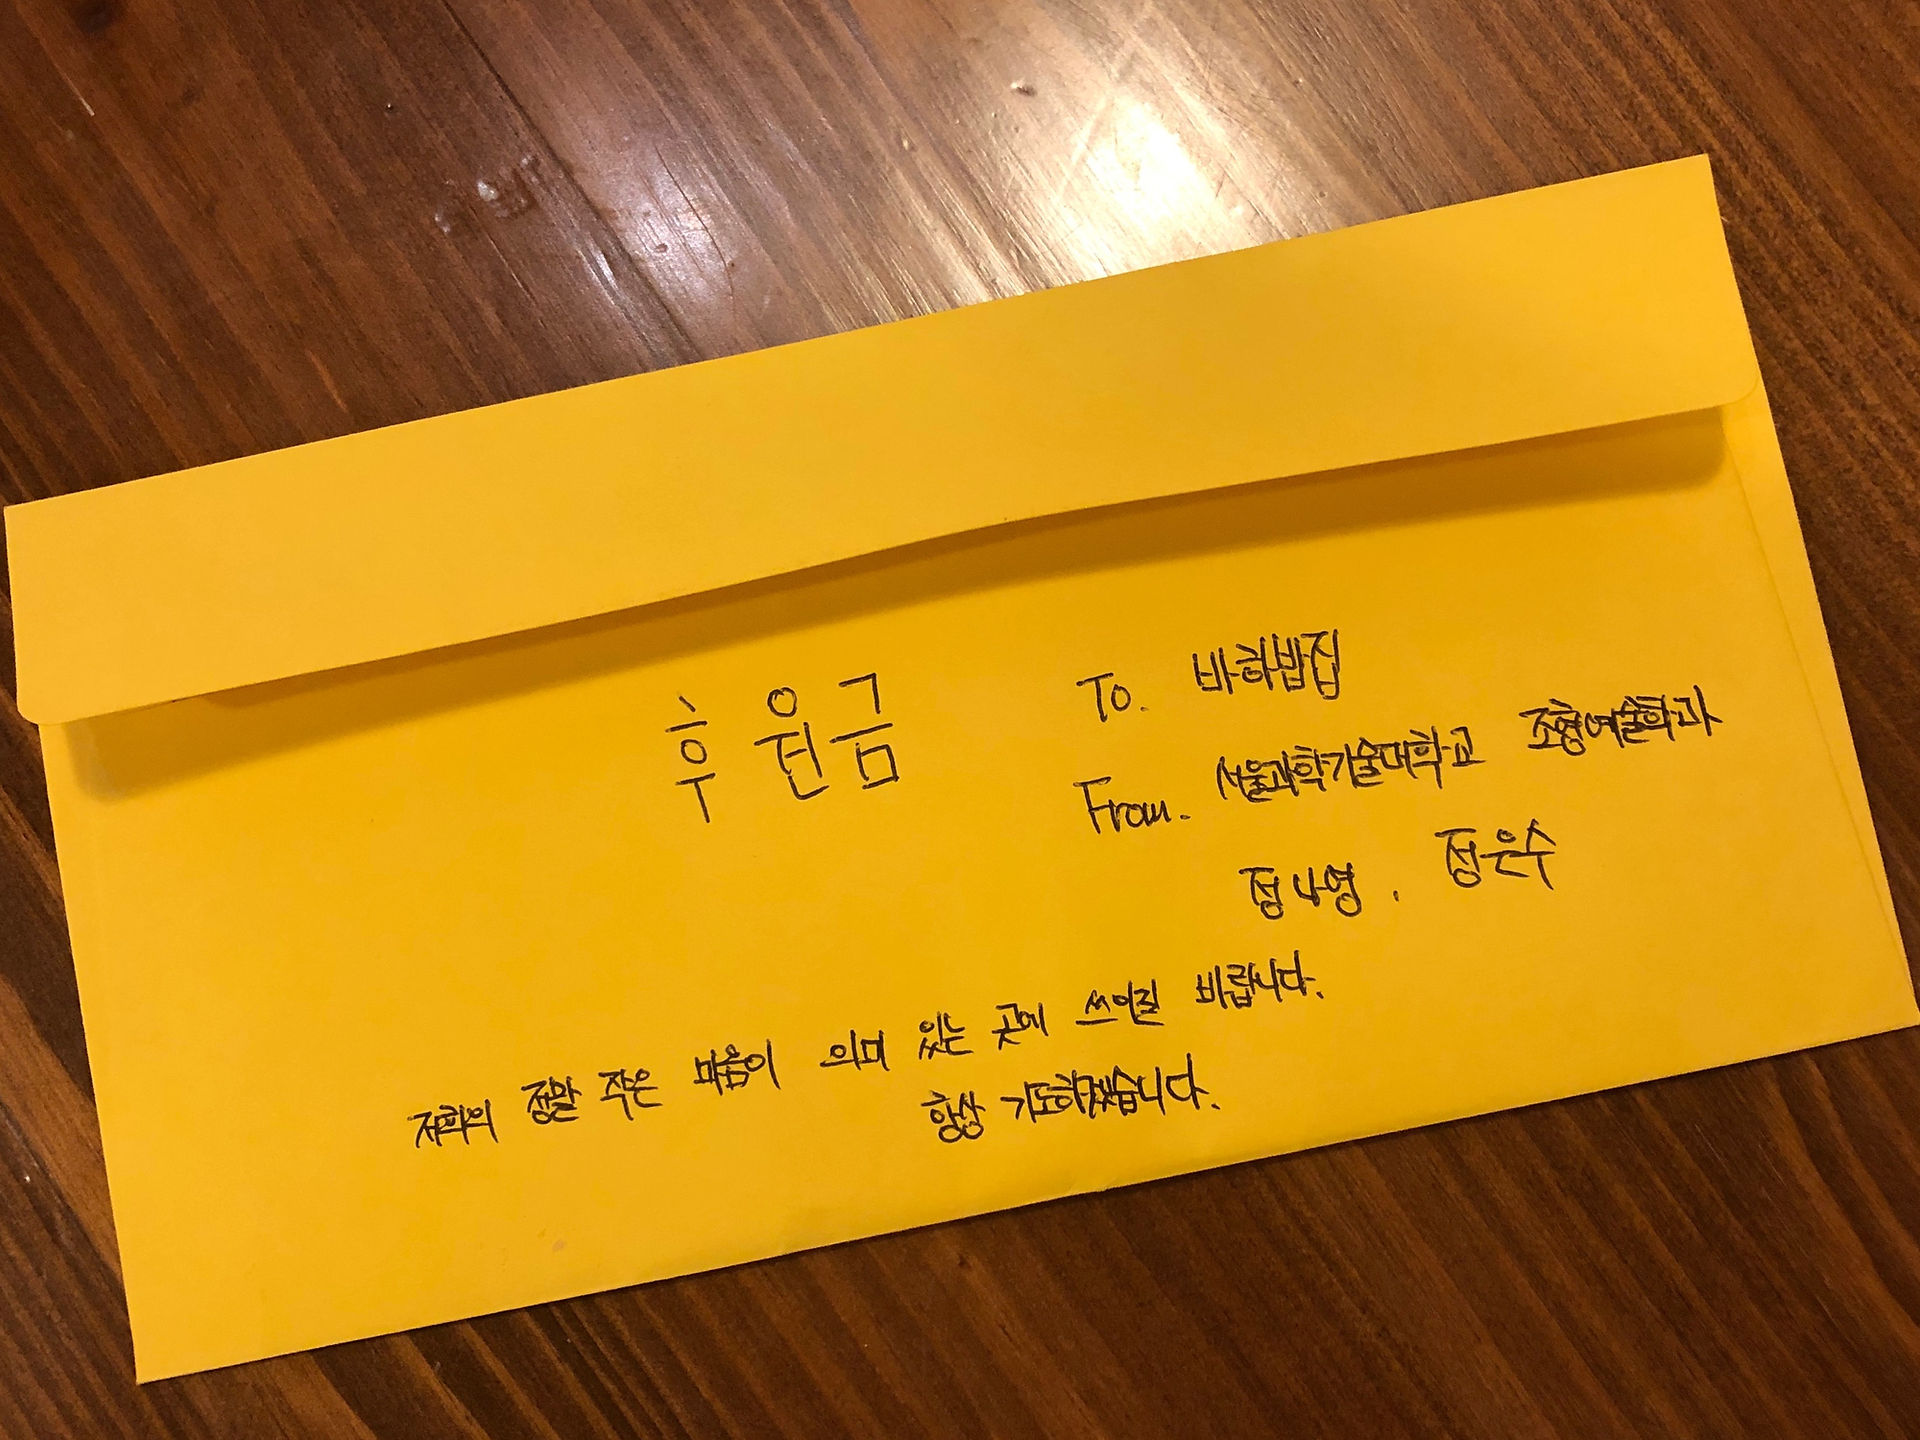 후원금
To. 바하밥집
From. 서울과학기술대학교 조형예술학과
정나영, 정은수
저희의 정말 작은 마음이 의미 있는 곳에 쓰이길 바랍니다.
항상 기도하겠습니다.